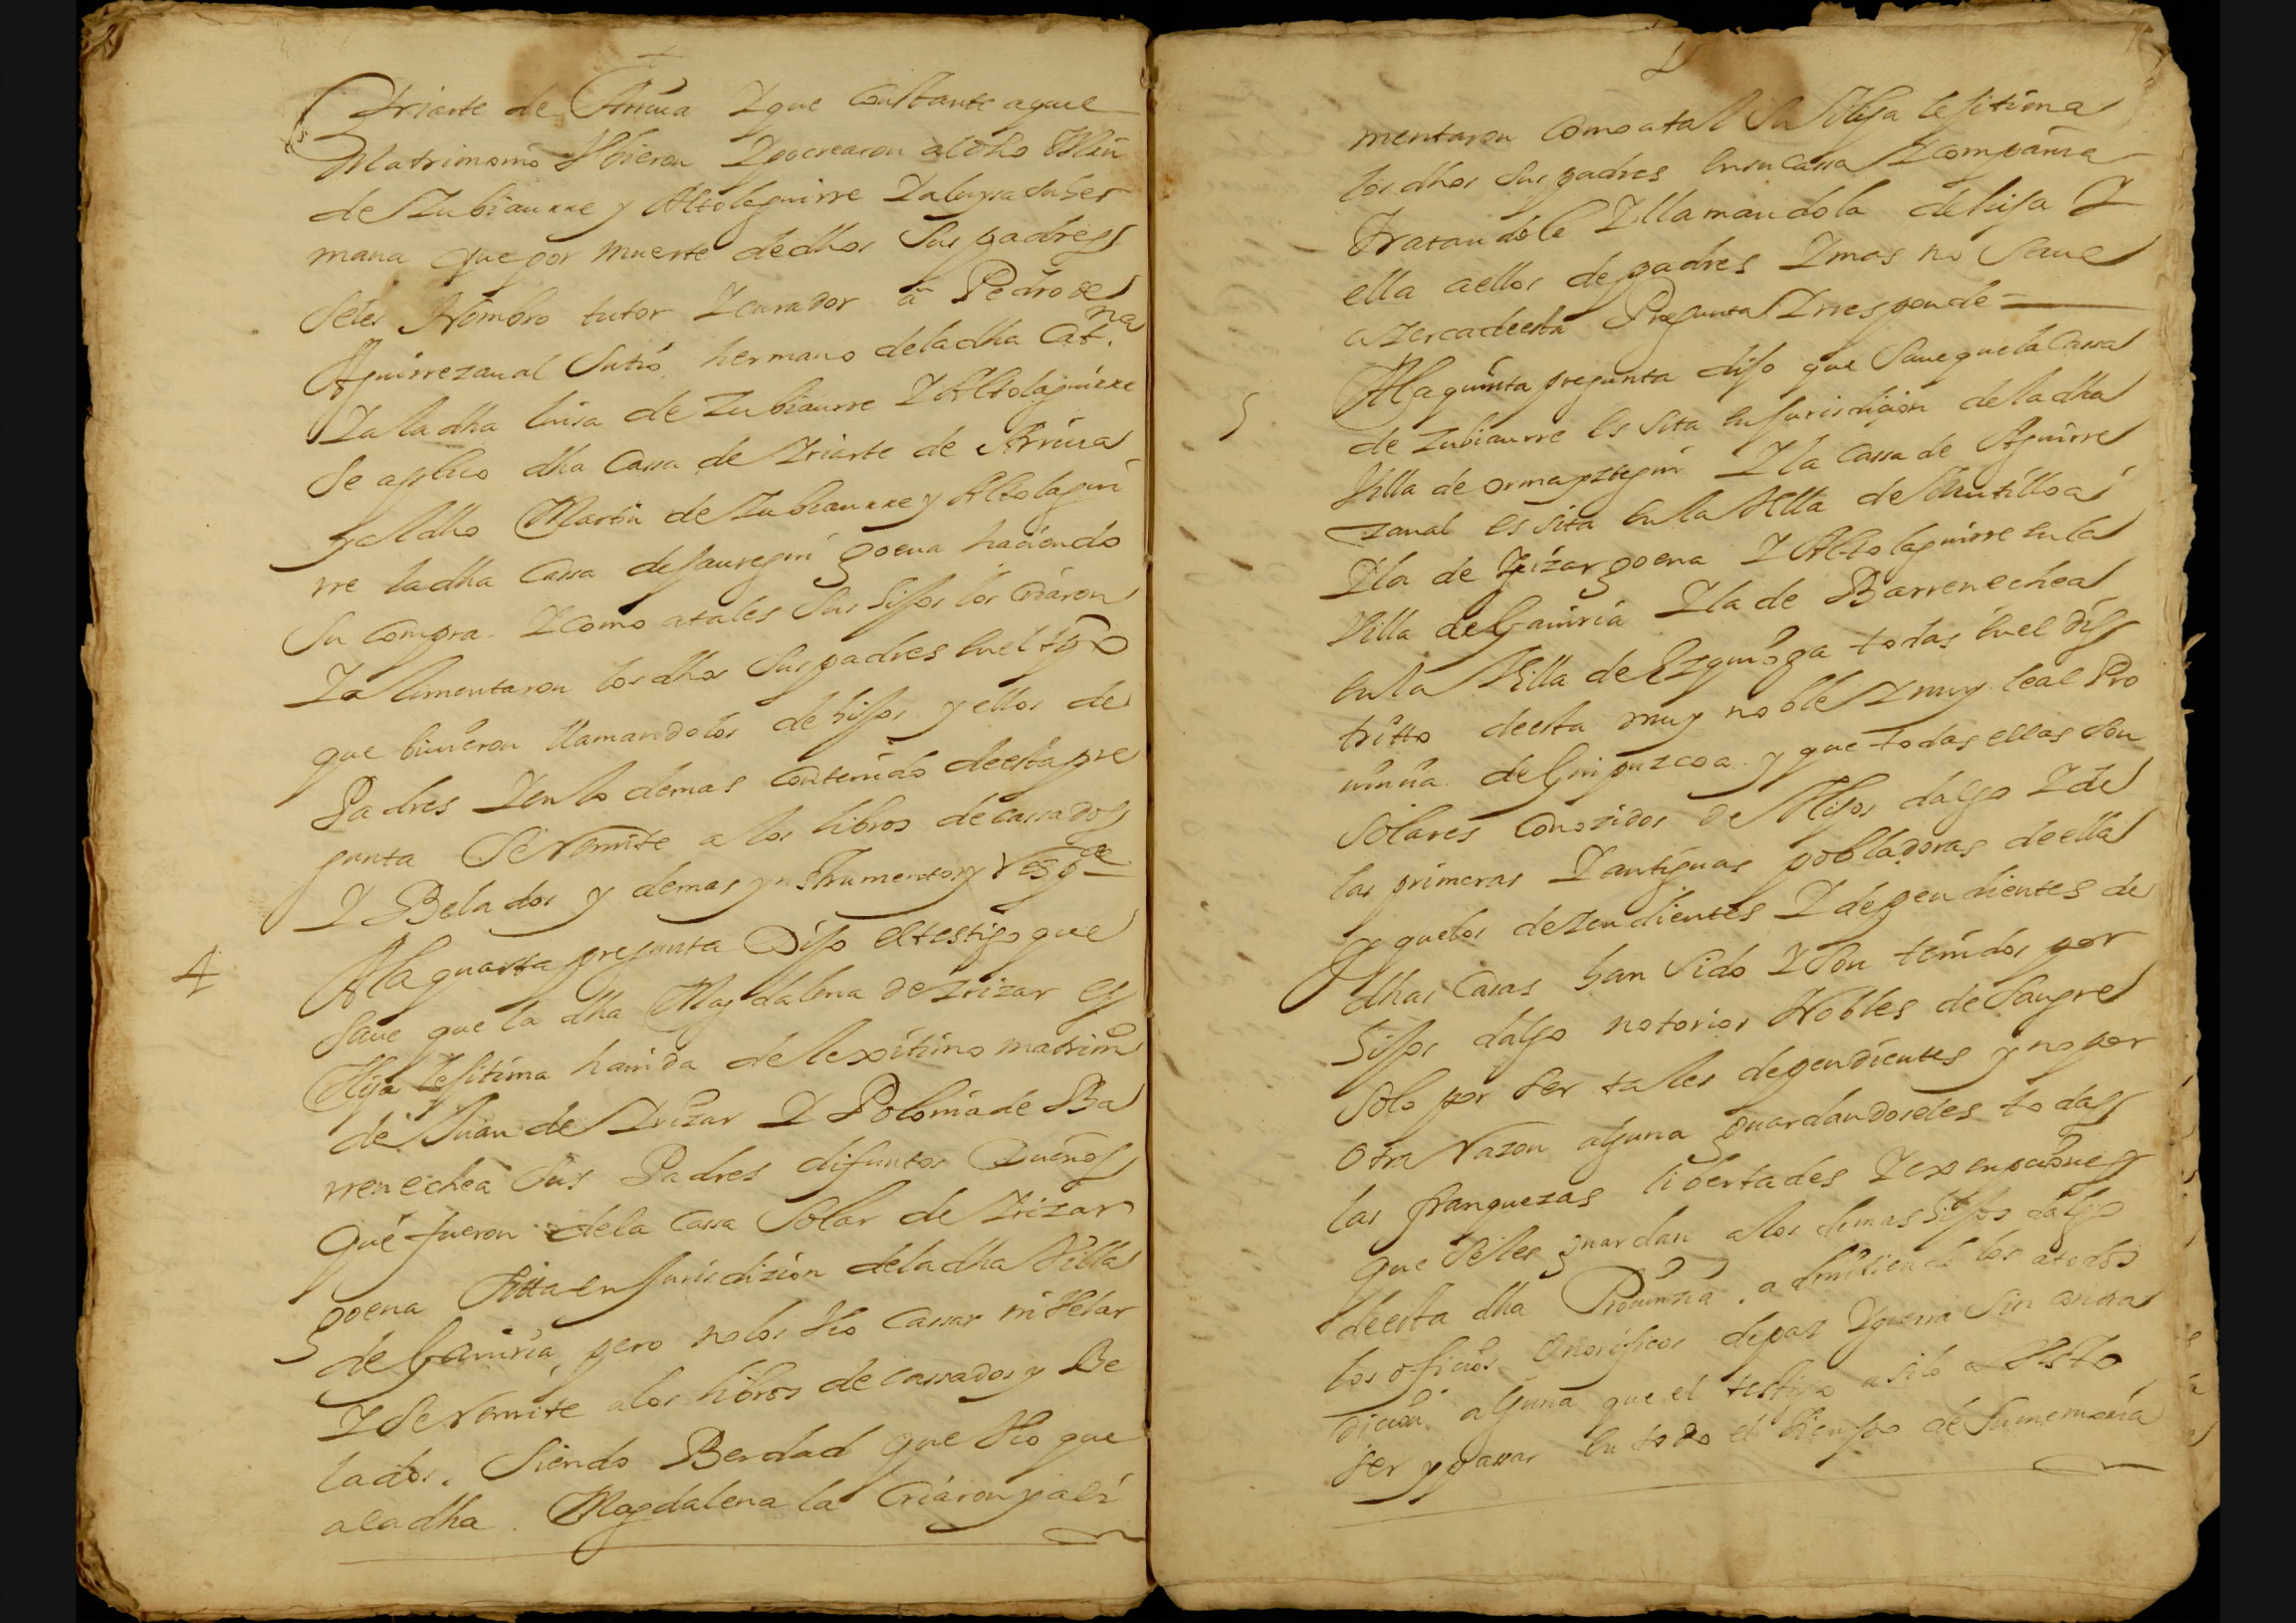 Yriarte de Arriua Y que Constante aquel
Matrimonio Vbieron Y procrearon al dho Mrn
de Zubiaurre y Altolaguirre Y a luysa su her
mana que por muerte de dhos Sus padres
Seles Nombro tutor Y curador a Pedro de
Aguirrezaual Sutio hermano dela dha Cat.na
Y a la dha luisa de Zubiaurre Y Altolaguirre
Se aplico dha Cassa de Yriarte de Arriua
y al dho Martin de Zubiaurre y Altolagui
rre la dha Cassa de Jauregui goena haciendo
Su Compra Y como a tales Sus hijos los Criaron
Y alimentaron los dhos Sus padres en el tpo
que biuieron llamandolos de hijos y ellos de
Padres Y en lo demas Contenido de esta pre
gunta Se Remite a los libros de cassados
Y Belados y demas ynstrumentos y Resp.de
4 A la quarta pregunta Dijo el testigo que
Saue que la dha Magdalena de Yrizar es
Hija lejitima hauida de lexitimo matrim.o
de Juan de Yrizar Y Polonia de Ba
rrenechea Sus Padres difuntos Dueños
que fueron dela Cassa Solar de Yrizar
goena Sitta en Jurisdizion dela dha Villa
de Gauiria, pero no los Vio Cassar ni Velar
Y Se Remite a los libros de cassados y Be
lados. Siendo Berdad que Vio que
a la dha Magdalena la Criaron y ali
mentaron Como a tal Su Hija lejitima
los dhos Sus padres en su cassa Y compañia
Tratandole Y llamandola de hija Y
ella a ellos de padres Y mas no Saue
azerca de esta Pregunta Y rresponde
5 A la quinta pregunta dijo que Saue que la Cassa
de Zubiaurre es Sita en Jurisdicion de la dha
Villa de ormayztegui Y la Cassa de Aguirre
zaual es sita en la Villa de Mutilloa
Y la de Yrizar goena Y Altolaguirre en la
Villa de Gauiria Y la de Barrenechea
en la Villa de Ezquioga todas en el dis
tritto de esta muy noble Y muy leal Pro
uincia de Guipuzcoa y que todas ellas Son
Solares Conozidos de Hijos dalgo Y de
las primeras Y antiguas pobladoras de ella
Y que los dezendientes Y dependientes de
dhas Casas han Sido Y Son tenidos por
hijos dalgo notorios Nobles de Sangre
Solo por Ser tales dependientes y no por
Otra Razon alguna guardandoseles todas
las franquezas libertades Y exenpciones
que Seles guardan a los demas hijos dalgo
de esta dha Prouincia, admitiendolos a todos
los oficios Onorificos de paz Y guerra Sin Contra
dicion alguna que el testigo a sido a Visto
Ser y passar en todo el tiempo de Su memoria